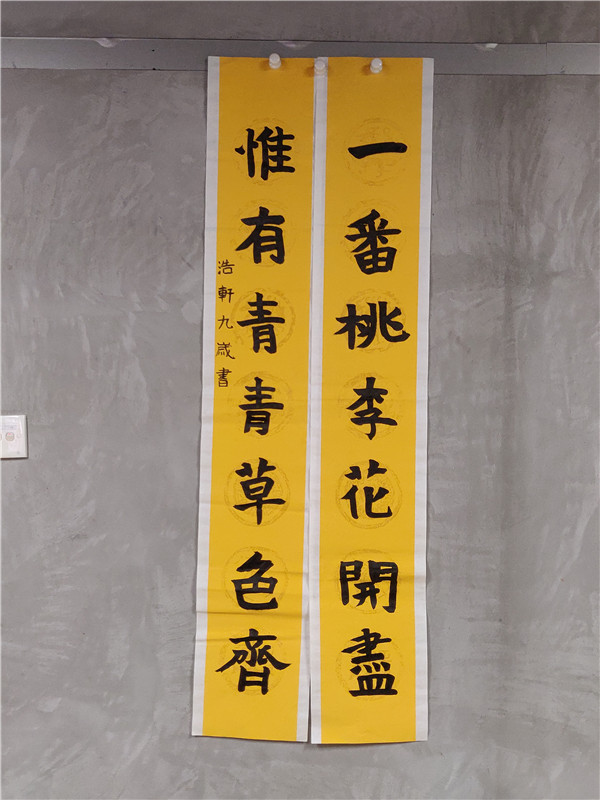 一番桃李花開盡
惟有青青草色齊
浩軒九歲書